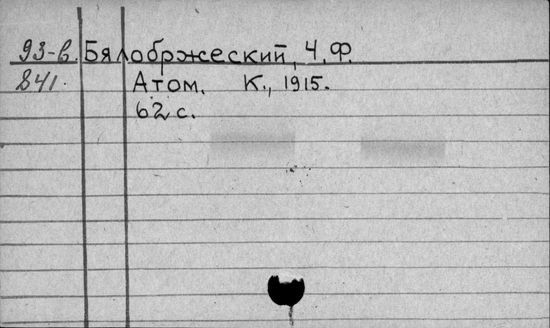 93-в. Бялобржеский, Ч. Ф.
841. Атом. К., 1915.
62 с.